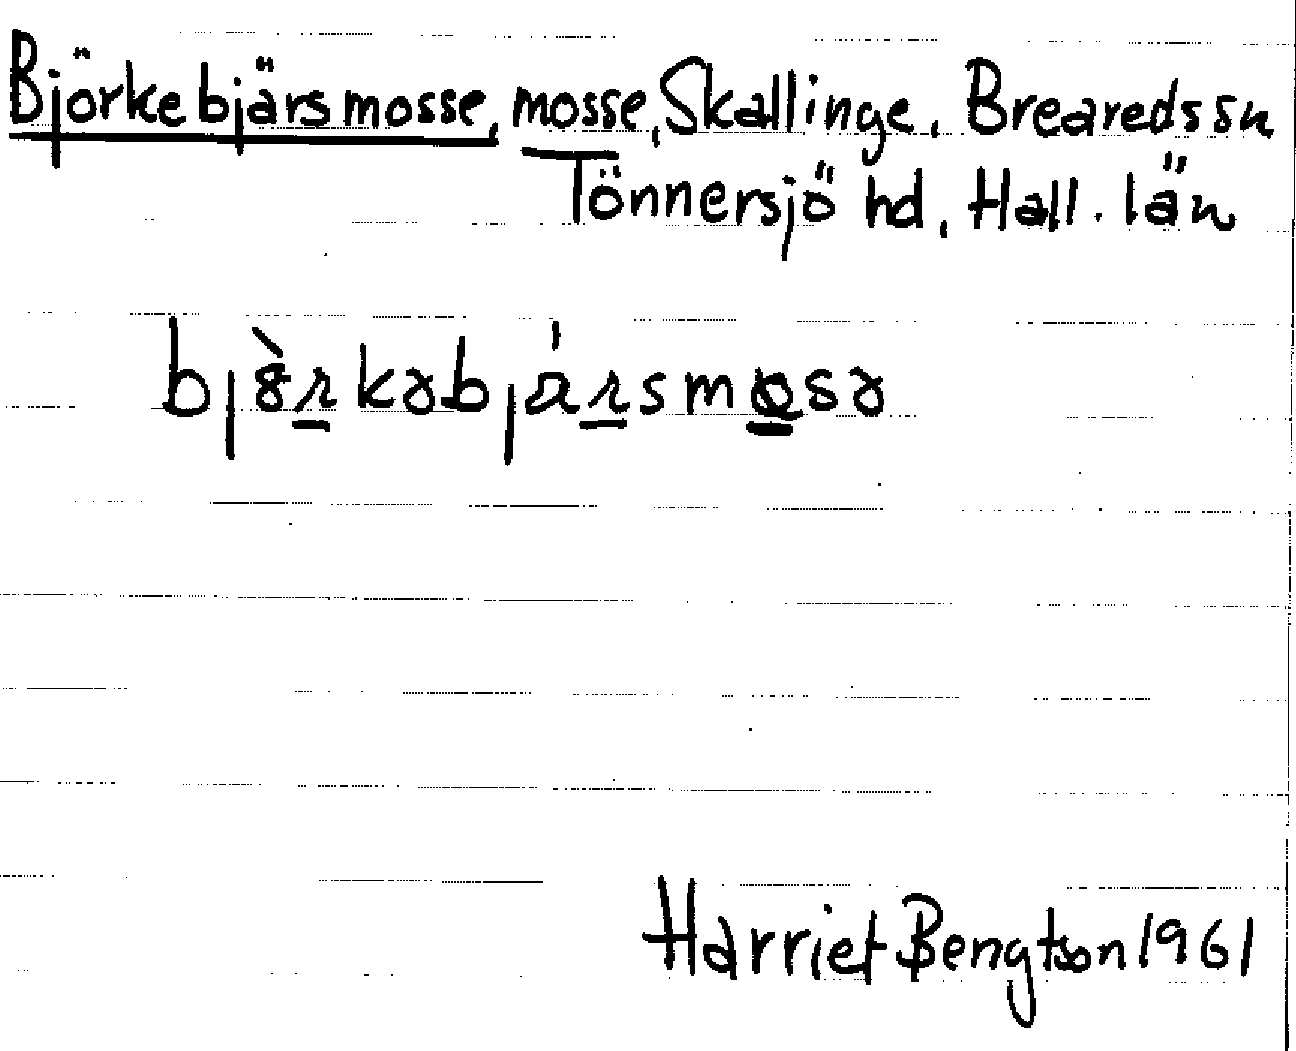 Björkebjärs mosse, mosse, Skallinge, Breareds sn
Tönnersjö hd, Hall. län
bjö̀rkəbjársmosə
Harriet Bengtson 1961